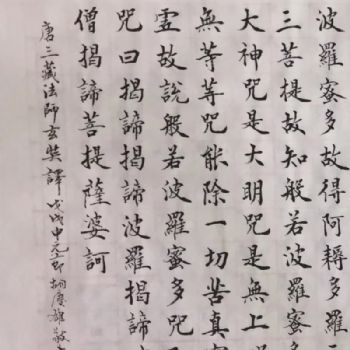 波羅蜜多故得阿耨多羅
三菩提故知般若波羅蜜多
大神咒是大明咒是無上
無等等咒能除一切苦真實
虛故說般若波羅蜜多咒
咒曰揭諦揭諦波羅揭諦
僧揭諦菩提薩婆訶
唐三藏法師玄奘譯 戊戌中元節